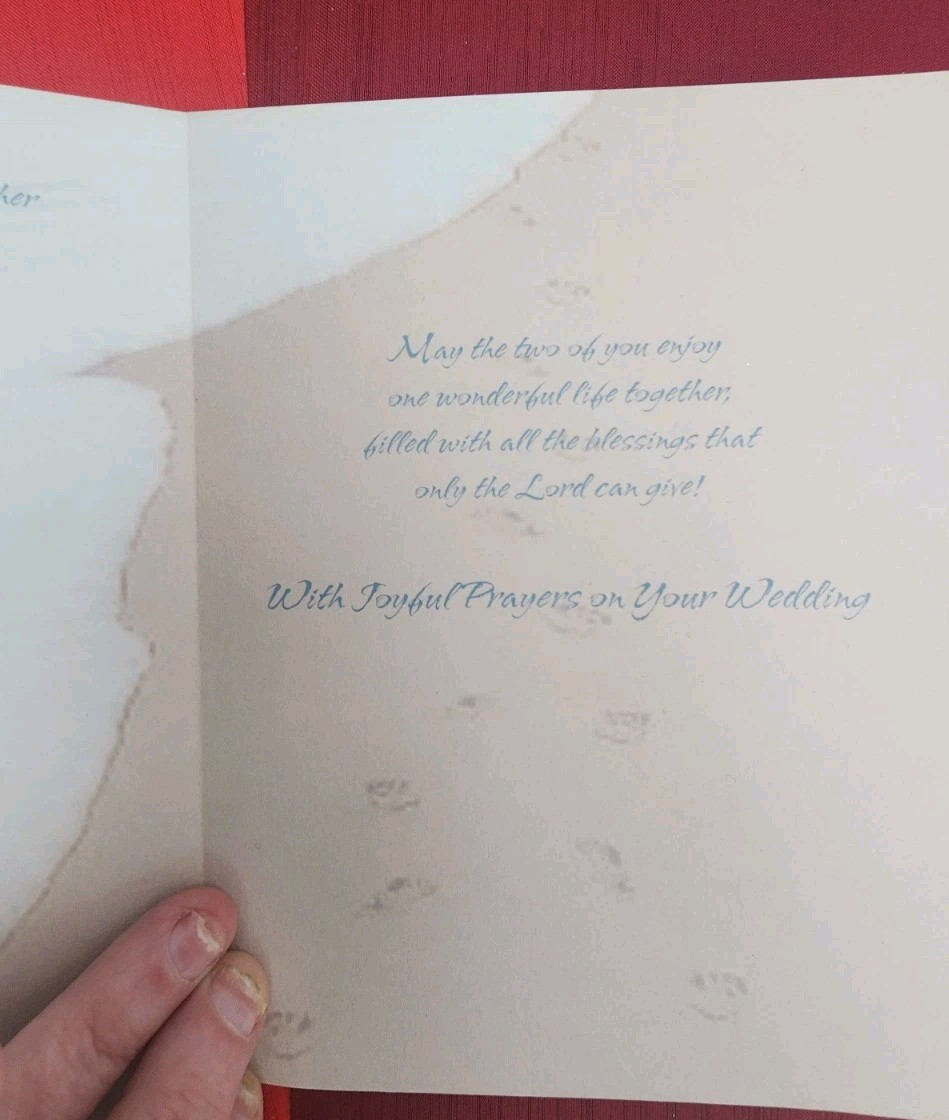 May the two of you enjoy
one wonderful life together,
filled with all the blessings that
only the Lord can give!
With Joyful Prayers on Your Wedding